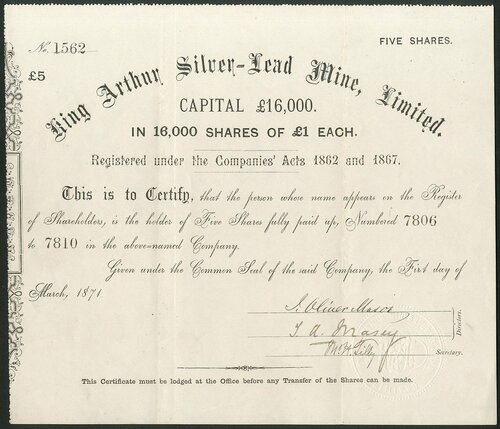 No. 1562
FIVE SHARES.
£5
King Arthur Silver-Lead Mine, Limited.
CAPITAL £16,000.
IN 16,000 SHARES OF £1 EACH.
Registered under the Companies' Acts 1862 and 1867.
This is to Certify, that the person whose name appears on the Register
of Shareholders, is the holder of Five Shares fully paid up, Numbered 7806
to 7810 in the above-named Company.
Given under the Common Seal of the said Company, the First day of
March, 1871
J. Oliver
T. A. Masey
Directors.
Secretary.
This Certificate must be lodged at the Office before any Transfer of the Shares can be made.